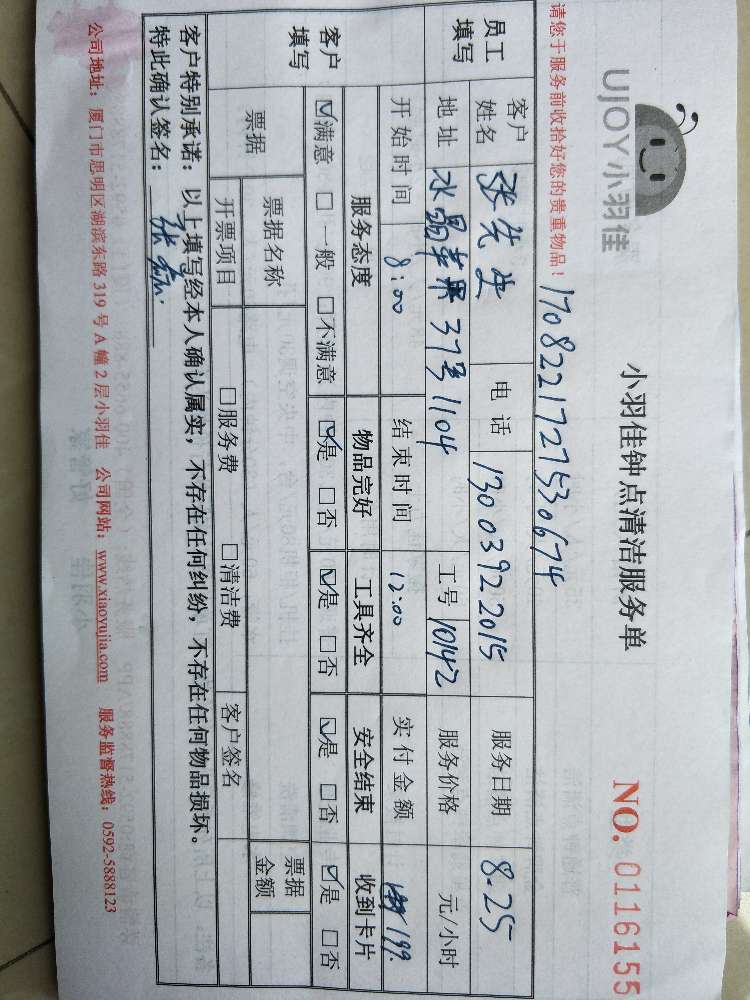 UJOY小羽佳
小羽佳钟点清洁服务单
NO. 0116155
请您于服务前收拾好您的贵重物品！
170822172753 0674
员工填写 客户姓名 张先生 电话 13003922015 服务日期 8.25
地址 水晶苹果37号1104 工号 10142 服务价格 元/小时
开始时间 8:00 结束时间 12:00 实付金额 199.
客户填写 服务态度 物品完好 工具齐全 安全结束 收到卡片
☑满意 □一般 □不满意 ☑是 □否 ☑是 □否 ☑是 □否 ☑是 □否
票据 票据名称 票据金额
开票项目 □服务费 □清洁费 客户签名
客户特别承诺：以上填写经本人确认属实，不存在任何纠纷，不存在任何物品损坏。
特此确认签名：张
公司地址：厦门市思明区湖滨东路319号A幢2层小羽佳 公司网站：www.xiaoyujia.com 服务监督热线：0592-5888123